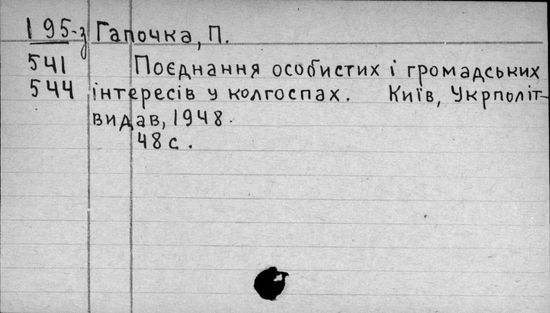 195-з Гапочка, П.
541 Поєднання особистих і громадських
544 інтересів у колгоспах. Київ, Укрполіт-
видав, 1948.
48 с.